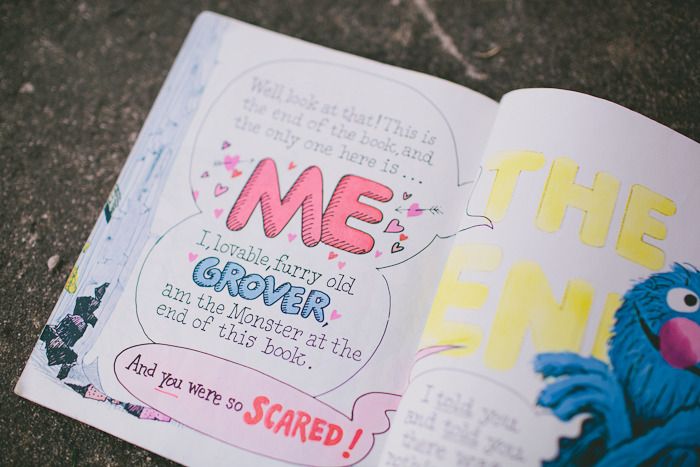 Well, look at that! This is
the end of the book, and
the only one here is...
ME
I, lovable, furry old
GROVER,
am the Monster at the
end of this book.
And you were so SCARED!
THE
EN
I told you
and told you
there w